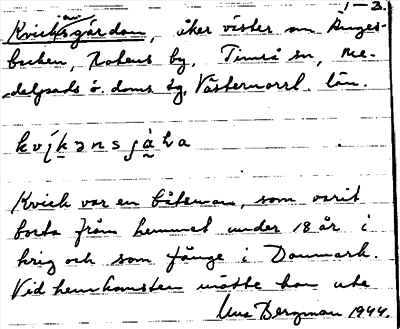 1-3.
Kvickens gårdom, åker väster om Änges-
backen, Rotens by, Timrå sn, Me-
delpads ö. doms sg, Västernorrl. län.
Kvick var en båtsman, som varit
borta från hemmet under 18 år i
krig och som fånge i Danmark.
Vid hemkomsten mötte han ute
Una Bergman 1944.